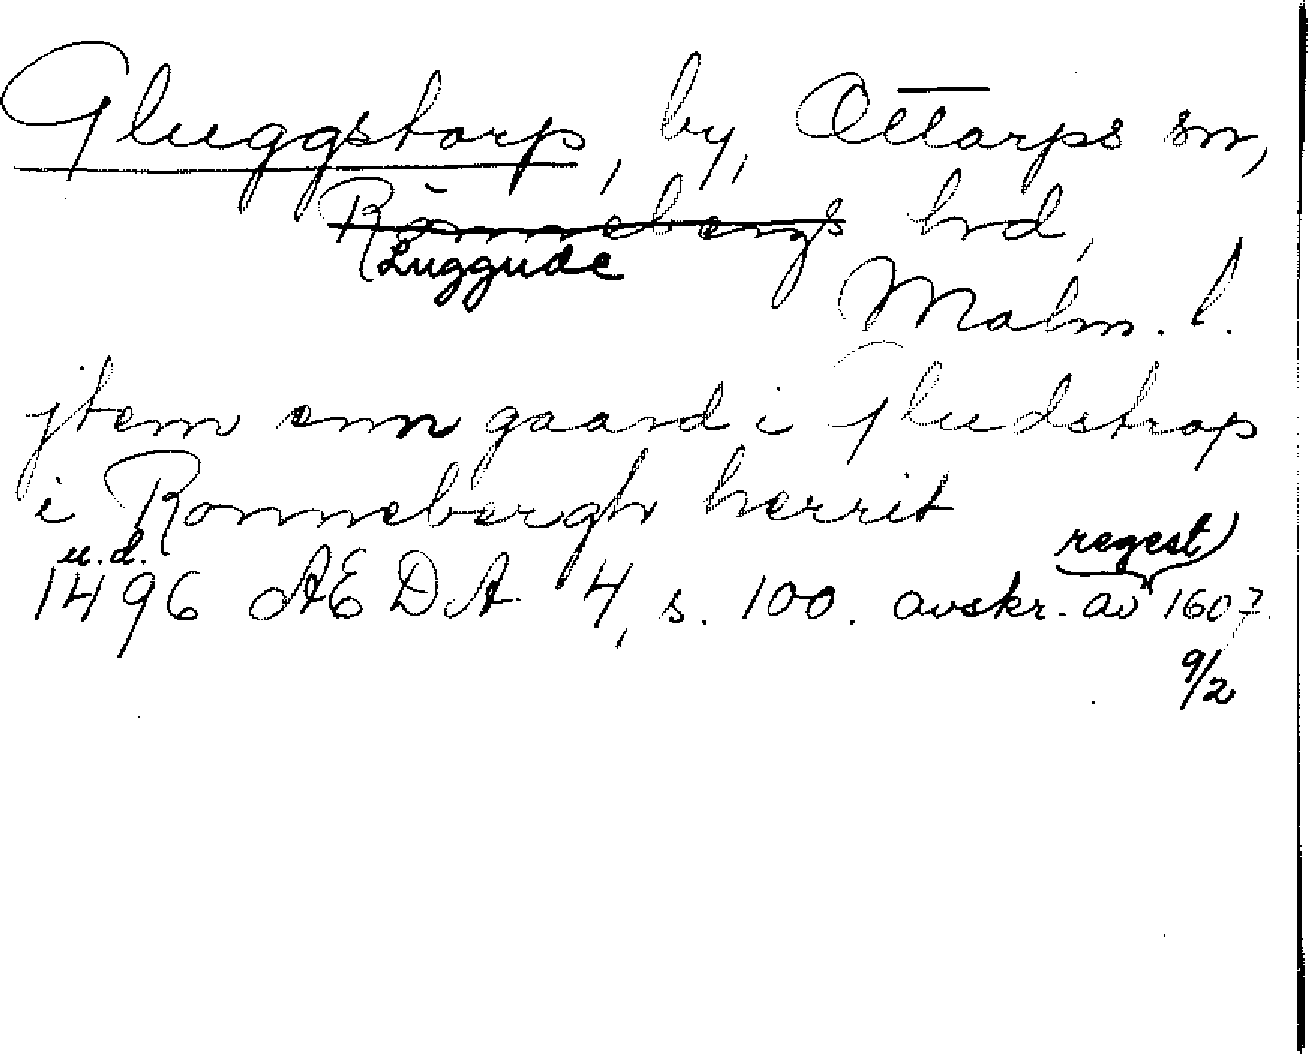 Gluggstorp, by, Ottarps sn,
Rönnebergs hrd,
Luggude
Malm. l.
jtem enn gaard i Gludstrap
i Ronnebergh herrit
u.d. regest
1496 AEDA 4, s. 100. avskr. av 1607
9/2